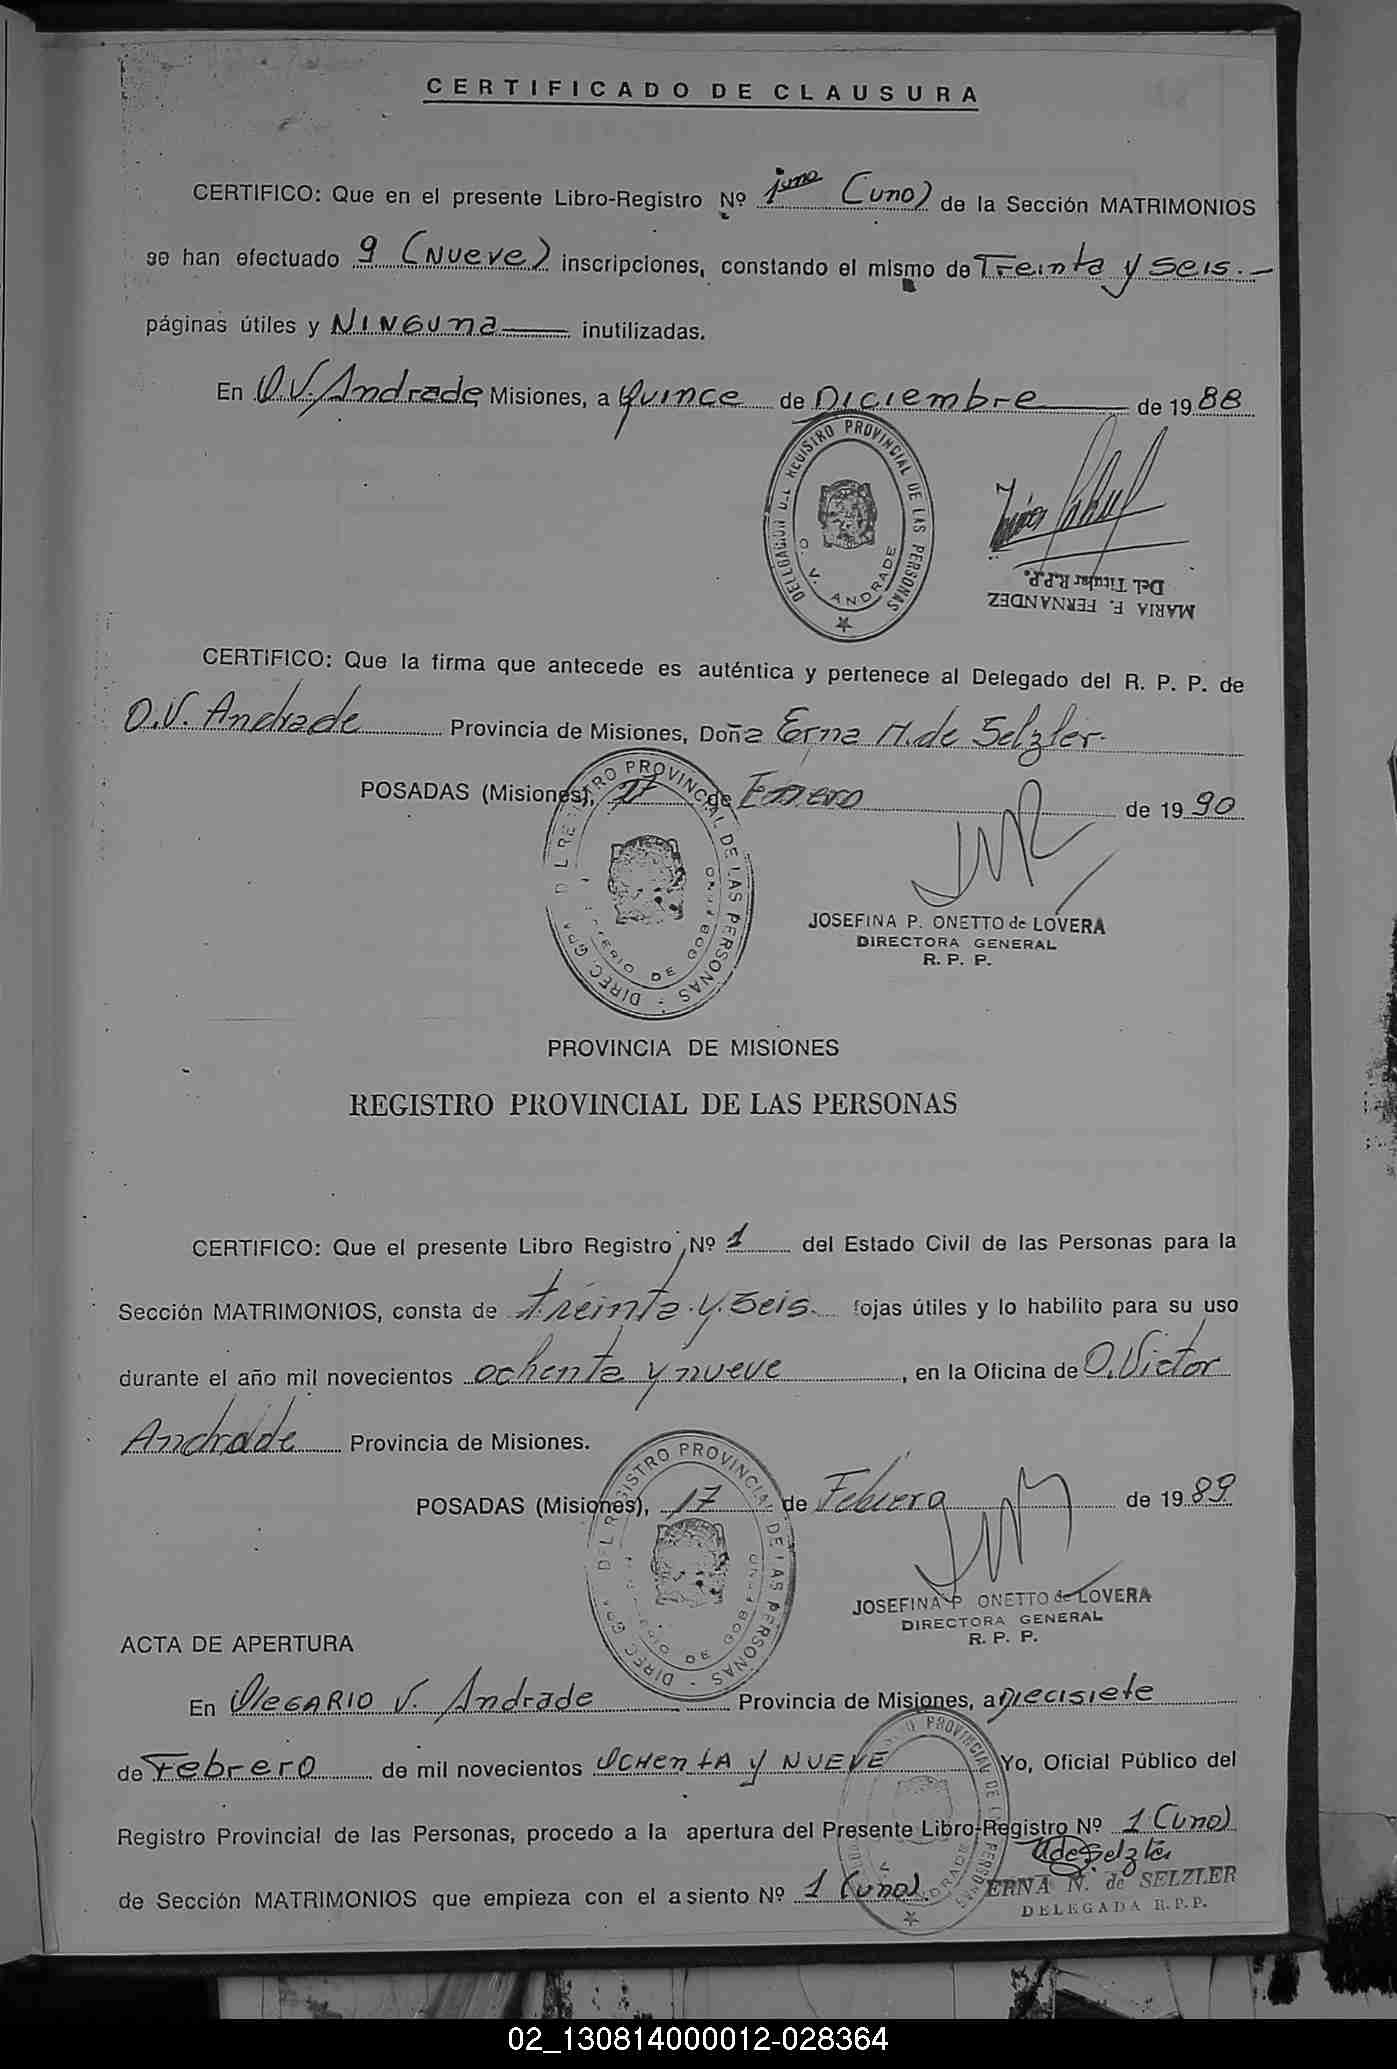 CERTIFICADO DE CLAUSURA
CERTIFICO: Que en el presente Libro-Registro Nº (uno) de la Sección MATRIMONIOS
se han efectuado 9 (Nueve) inscripciones, constando el mismo de Treinta y seis.-
páginas útiles y NINGUNA inutilizadas.
En O.V. Andrade, Misiones, a quince de Diciembre de 1988
DELEGACION DEL REGISTRO PROVINCIAL DE LAS PERSONAS
O. V. ANDRADE
MARIA F. FERNANDEZ
Del. Titular R.P.P.
CERTIFICO: Que la firma que antecede es auténtica y pertenece al Delegado del R. P. P. de
O.V. Andrade Provincia de Misiones, Doña Erna N. de Selzler.
POSADAS (Misiones), 17 de Enero de 1990
DIREC. GRAL DEL REGISTRO PROVINCIAL DE LAS PERSONAS
JOSEFINA P. ONETTO de LOVERA
DIRECTORA GENERAL
R. P. P.
PROVINCIA DE MISIONES
REGISTRO PROVINCIAL DE LAS PERSONAS
CERTIFICO: Que el presente Libro Registro Nº 1 del Estado Civil de las Personas para la
Sección MATRIMONIOS, consta de treinta y seis fojas útiles y lo habilito para su uso
durante el año mil novecientos ochenta y nueve, en la Oficina de O. Victor
Andrade Provincia de Misiones.
POSADAS (Misiones), 17 de Febrero de 1989
DIREC. GRAL DEL REGISTRO PROVINCIAL DE LAS PERSONAS
JOSEFINA P ONETTO de LOVERA
DIRECTORA GENERAL
R. P. P.
ACTA DE APERTURA
En OLEGARIO V. Andrade Provincia de Misiones, a Diecisiete
de Febrero de mil novecientos OCHENTA y NUEVE Yo, Oficial Público del
Registro Provincial de las Personas, procedo a la apertura del Presente Libro-Registro Nº 1 (uno)
de Sección MATRIMONIOS que empieza con el asiento Nº 1 (uno).
ERNA N. de SELZLER
DELEGADA R.P.P.
02_130814000012-028364